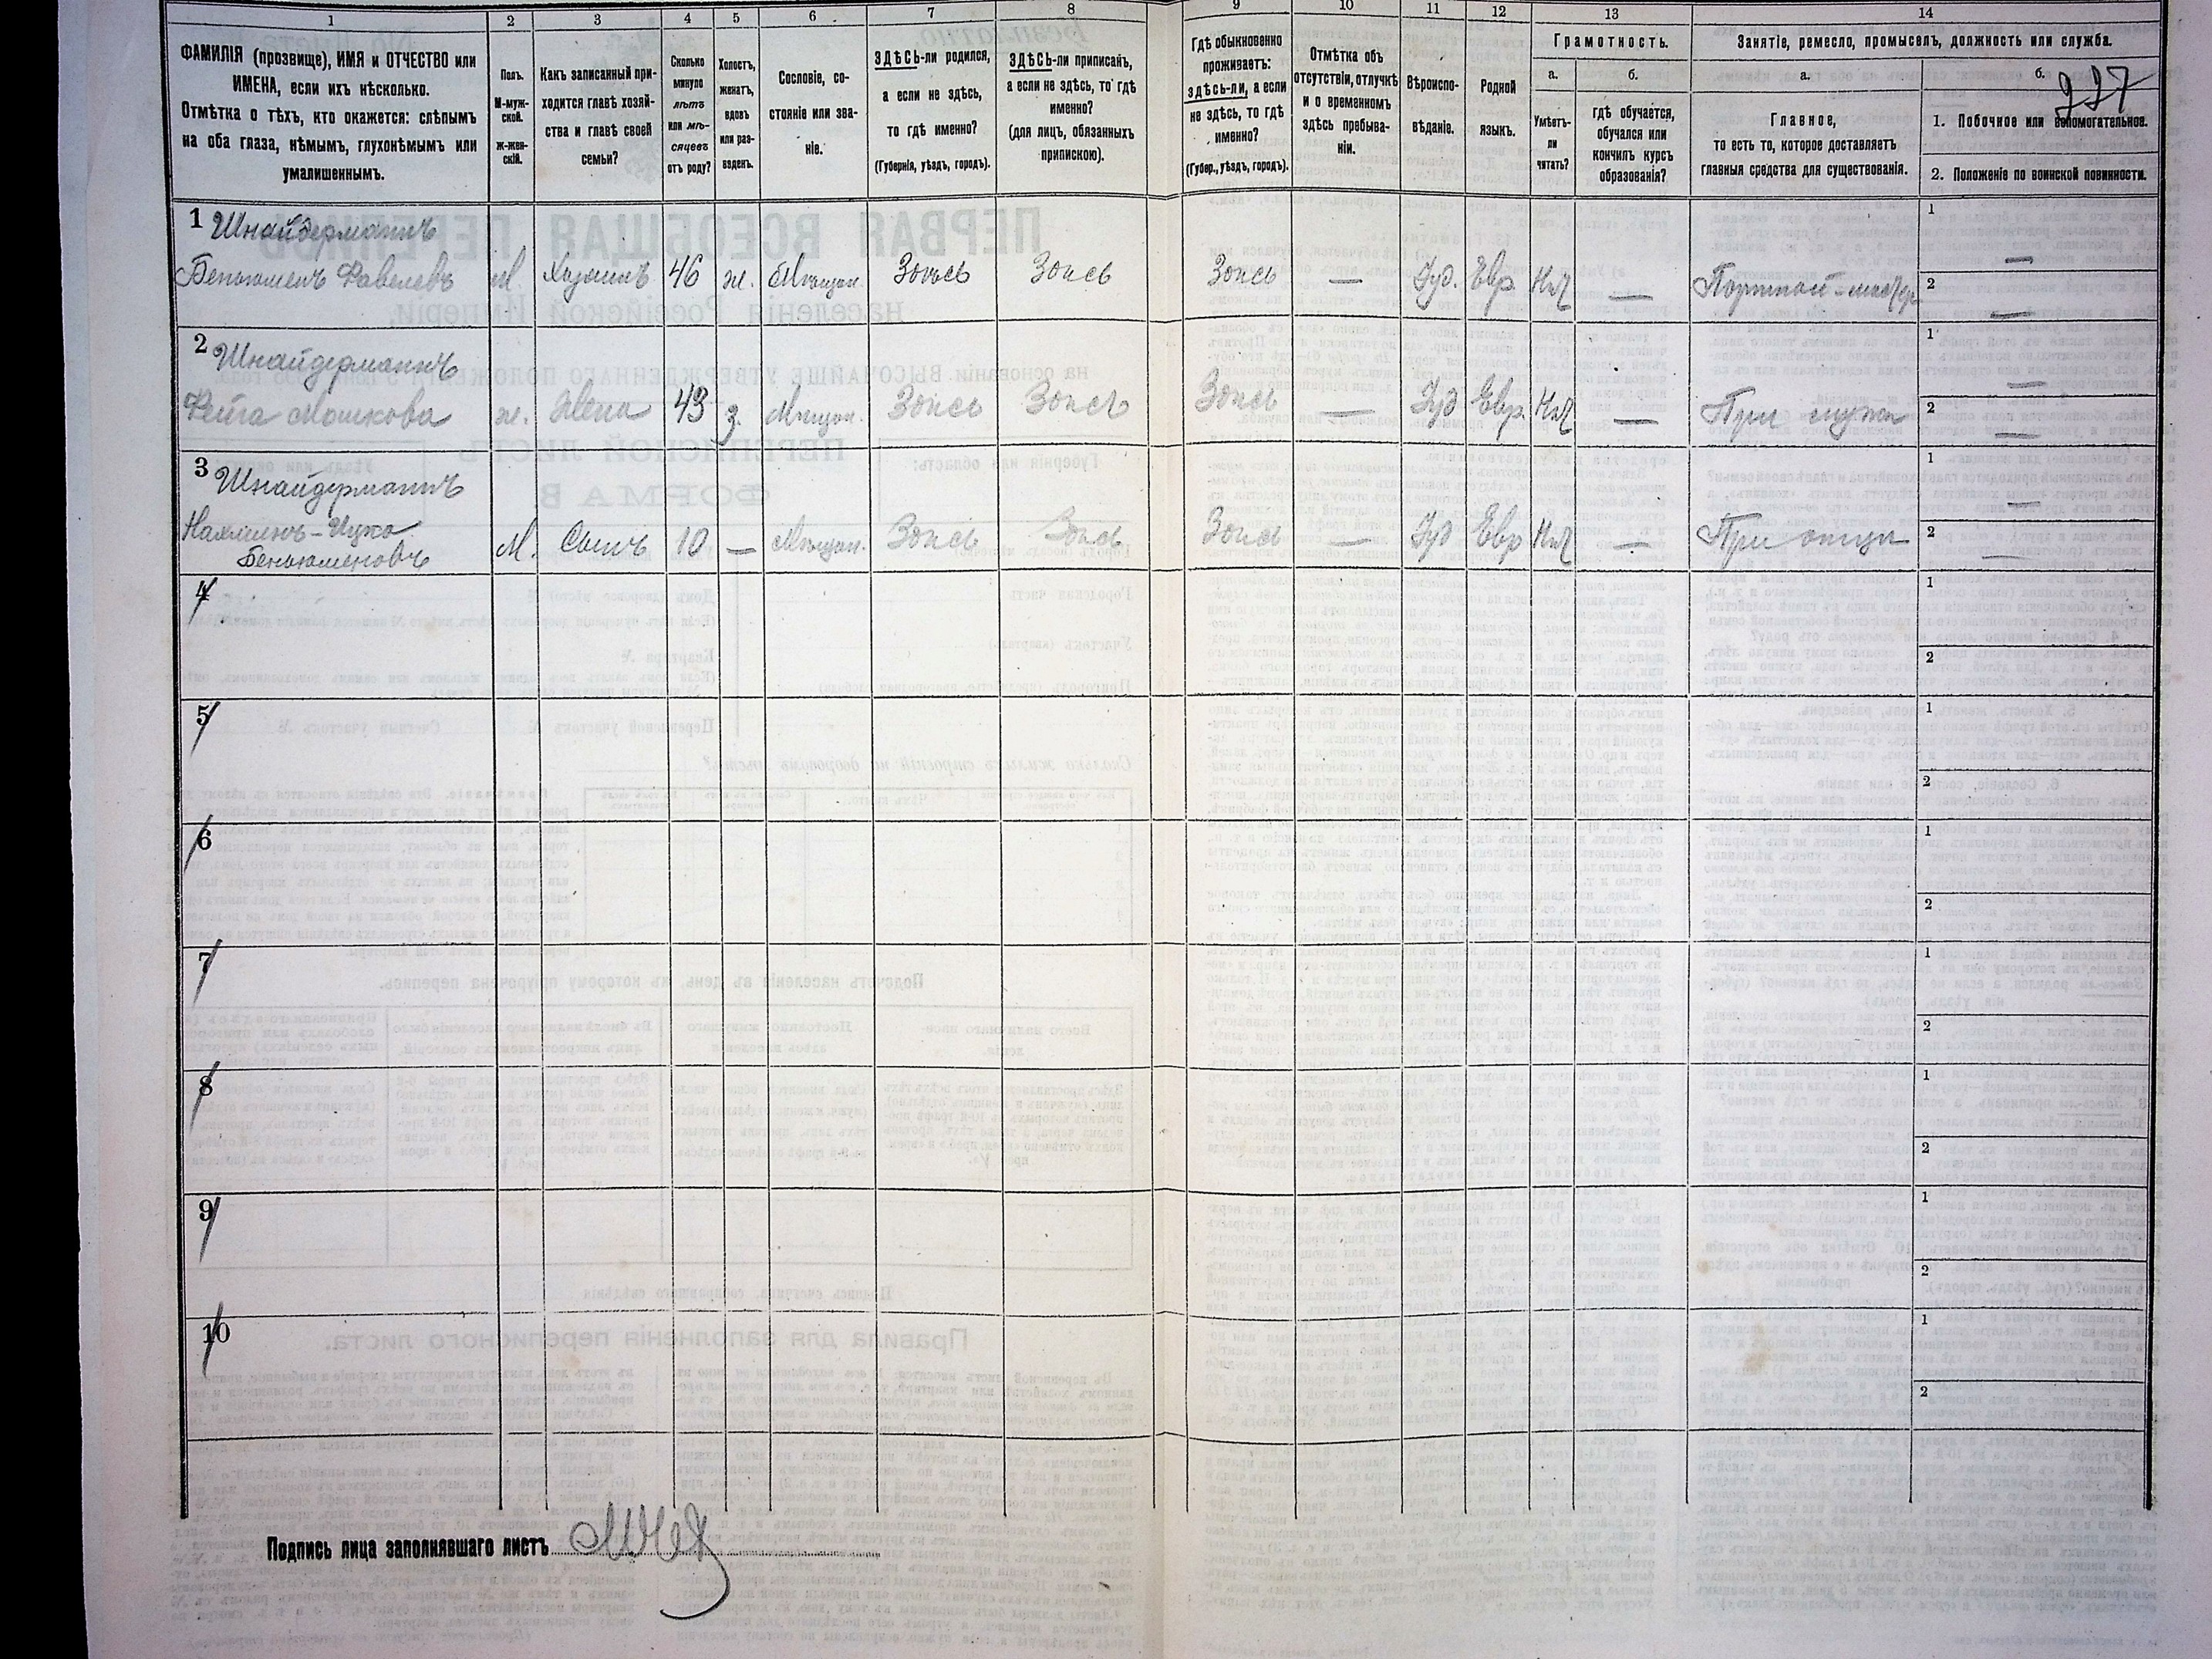 1 2 3 4 5 6 7 8 9 10 11 12 13 14
ФАМИЛІЯ (прозвище), ИМЯ и ОТЧЕСТВО или
ИМЕНА, если ихъ нѣсколько.
Отмѣтка о тѣхъ, кто окажется: слѣпымъ
на оба глаза, нѣмымъ, глухонѣмымъ или
умалишеннымъ.
Полъ.
М-муж-
ской.
ж-жен-
скій.
Какъ записанный при-
ходится главѣ хозяй-
ства и главѣ своей
семьи?
Сколько
минуло
лѣтъ
или мѣ-
сяцевъ
отъ роду?
Холостъ,
женатъ,
вдовъ
или раз-
веденъ.
Сословіе, со-
стояніе или зва-
ніе.
ЗДѢСЬ-ли родился,
а если не здѣсь,
то гдѣ именно?
(Губернія, уѣздъ, городъ).
ЗДѢСЬ-ли приписанъ,
а если не здѣсь, то гдѣ
именно?
(для лицъ, обязанныхъ
припискою).
Гдѣ обыкновенно
проживаетъ:
здѣсь-ли, а если
не здѣсь, то гдѣ
именно?
(Губер., уѣздъ, городъ).
Отмѣтка объ
отсутствіи, отлучкѣ
и о временномъ
здѣсь пребыва-
ніи.
Вѣроиспо-
вѣданіе.
Родной
языкъ.
Грамотность.
а.
Умѣетъ-
ли
читать?
б.
гдѣ обучается,
обучался или
кончилъ курсъ
образованія?
Занятіе, ремесло, промыселъ, должность или служба.
а.
Главное,
то есть то, которое доставляетъ
главныя средства для существованія.
б.
227
1. Побочное или вспомогательное.
2. Положеніе по воинской повинности.
1 Шнайдерманъ 1 —
Беньюменъ Фавелевъ М. Хозяинъ 46 ж. Мѣщан. Здѣсь Здѣсь Здѣсь — Іуд. Евр. Нѣт — Портной-мастер 2 —
2 Шнайдерманъ 1 —
Фейга Мошкова ж. Жена 43 з. Мѣщан. Здѣсь Здѣсь Здѣсь — Іуд Евр. Нѣт — При мужѣ 2 —
3 Шнайдерманъ 1 —
Нахманъ-Ицко
Беньюменовъ М. Сынъ 10 — Мѣщан. Здѣсь Здѣсь Здѣсь — Іуд Евр Нѣт — При отцѣ 2 —
4 1
2
5 1
2
6 1
2
7 1
2
8 1
2
9 1
2
10 1
2
Подпись лица заполнявшаго листъ